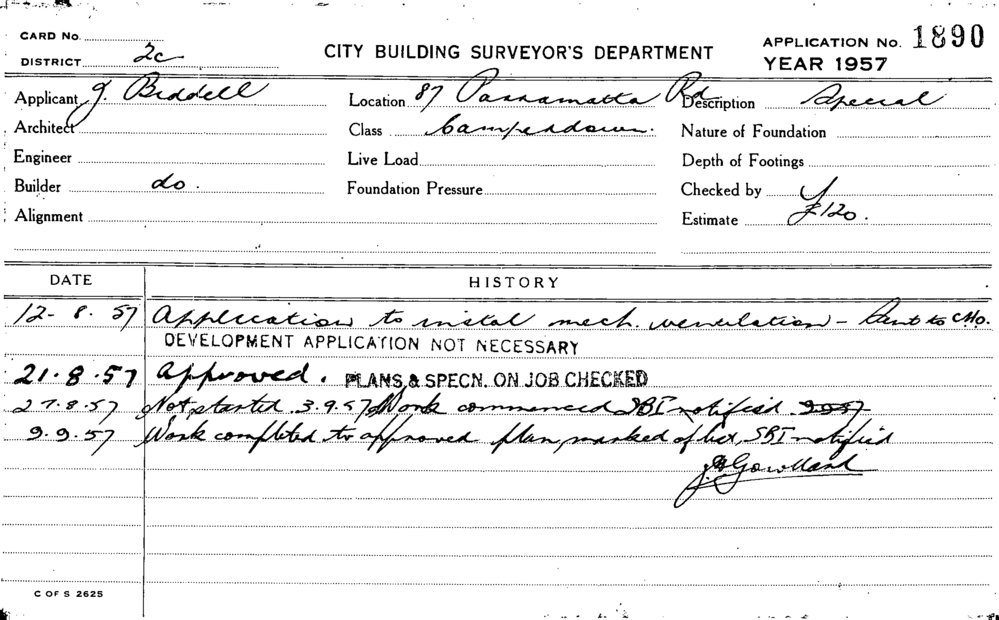 CARD No.
CITY BUILDING SURVEYOR'S DEPARTMENT
APPLICATION No. 1890
DISTRICT 2c
YEAR 1957
Applicant J. Biddell Location 87 Parramatta Rd Description Special
Architect Class Camperdown. Nature of Foundation
Engineer Live Load Depth of Footings
Builder do. Foundation Pressure Checked by
Alignment Estimate £120.
DATE HISTORY
12-8.57 Application to instal mech. ventilation - Sent to CHO.
DEVELOPMENT APPLICATION NOT NECESSARY
21.8.57 Approved. PLANS & SPECN. ON JOB CHECKED
27.8.57 Not started 3.9.57 Work commenced SBI notified
9.9.57 Work completed to approved plan, marked of list, SBI notified
J Gowlland
C OF S 2625